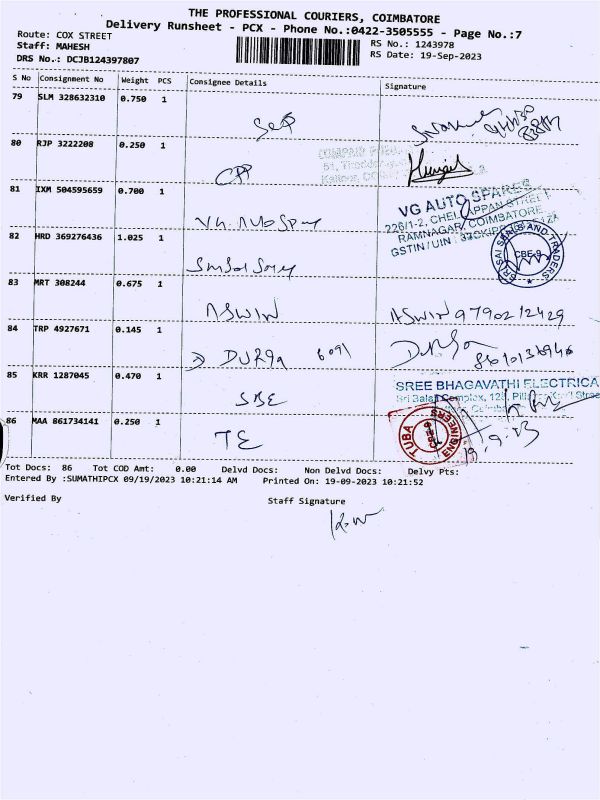 THE PROFESSIONAL COURIERS, COIMBATORE
Delivery Runsheet - PCX - Phone No.:0422-3505555 - Page No.:7
Route: COX STREET
RS No.: 1243978
Staff: MAHESH
RS Date: 19-Sep-2023
DRS No.: DCJB124397807
S No Consignment No Weight PCS Consignee Details Signature
79 SLM 328632310 0.750 1
80 RJP 3222208 0.250 1
CPP
81 IXM 504595659 0.700 1
VG AUTO SPARES
226/1-2, CHELLAPPAN STREET
RAMNAGAR, COIMBATORE
GSTIN / UIN :
82 HRD 369276436 1.025 1
SRI SAI SALES AND TRADERS
CBE-9
83 MRT 308244 0.675 1
ASWIN ASWIN 9790212429
84 TRP 4927671 0.145 1
DURGA 6091
85 KRR 1287045 0.470 1
SBE
SREE BHAGAVATHI ELECTRICA
Sri Balaji Complex, 125,
86 MAA 861734141 0.250 1
TE
TUBA ENGINEERS
CBE-9
19.9.23
Tot Docs: 86 Tot COD Amt: 0.00 Delvd Docs: Non Delvd Docs: Delvy Pts:
Entered By :SUMATHIPCX 09/19/2023 10:21:14 AM Printed On: 19-09-2023 10:21:52
Verified By Staff Signature